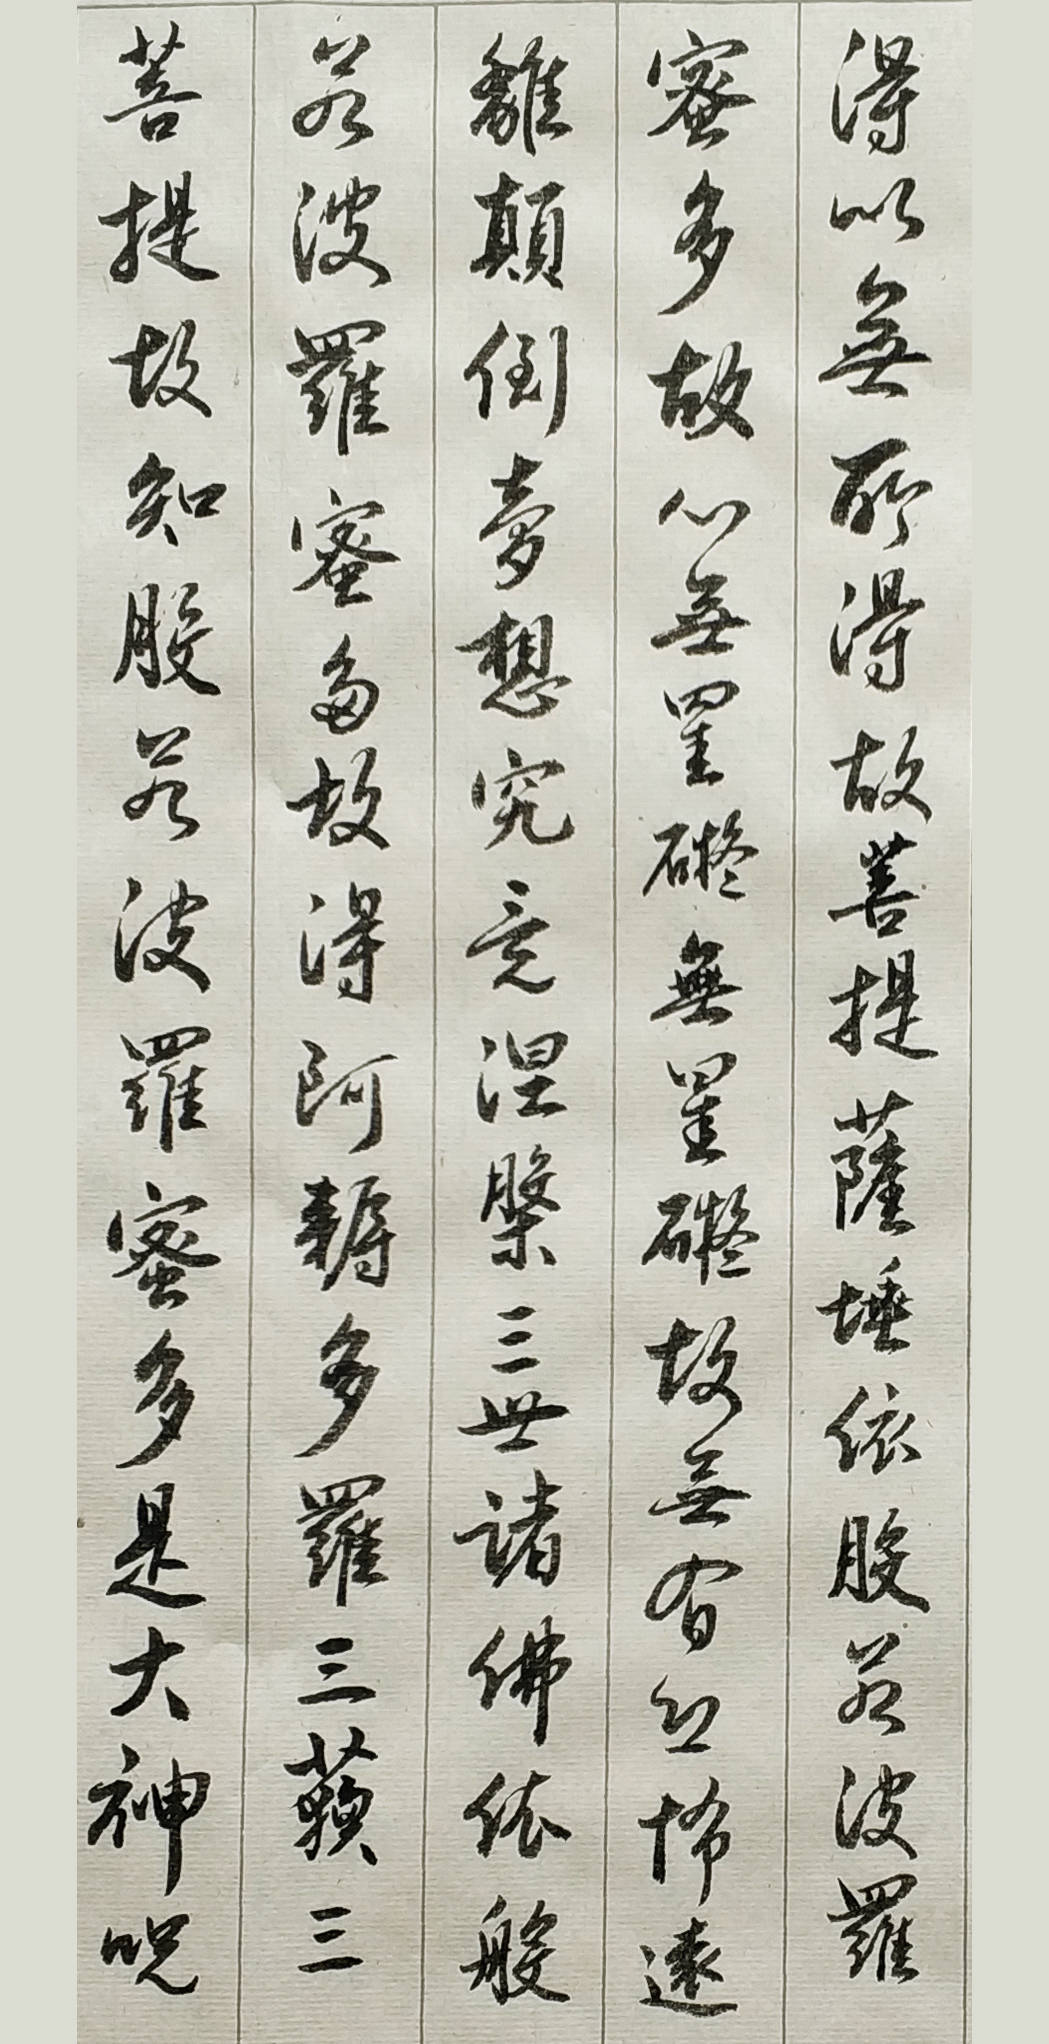 得以無所得故菩提薩埵依般若波羅
蜜多故心無罣礙無罣礙故無有恐怖遠
離顛倒夢想究竟涅槃三世諸佛依般
若波羅蜜多故得阿耨多羅三藐三
菩提故知般若波羅蜜多是大神咒